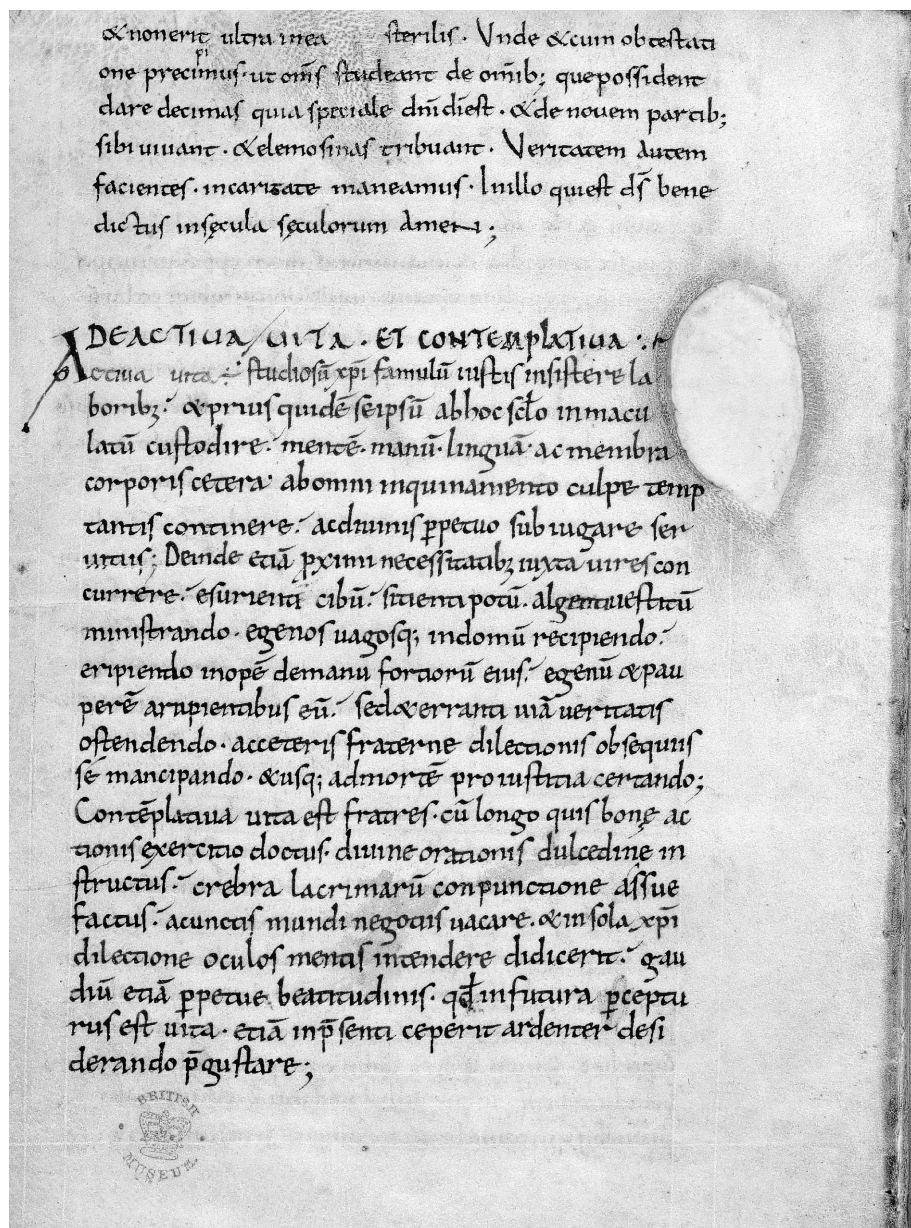 &non erit ultra in ea sterilis. Vnde &cum obtestati
one precipimus. ut om̄s studeant de omīb; que possident
dare decimas quia speciale dnī dī est. &de novem partib;
sibi uiuant. &elemosinas tribuant. Veritatem autem
facientes. in caritate maneamus. In illo qui est ds̄ bene
dictus in sęcula sęculorum amen;
DE ACTIUA UITA. ET CONTEMPLATIUA
Actiua uita ÷ studiosū xp̄i famulū iustis insistere la
borib; &prius quidē se ipsū ab hoc scło inmacu
latū custodire. mentē. manū. linguā. ac membra
corporis cetera ab omni inquinamento culpe temp
tantis continere. ac diuinis ꝑpetuo subiugare ser
uitiis; Deinde etiā ꝓximi necessitatib; iuxta uires con
currere. esurienti cibū. sitienti potū. algenti uestitū
ministrando. egenos uagosq; in domū recipiendo.
eripiendo inopē de manu fortiorū eius. egenū &pau
perē a ripientibus eū. sed &erranti uiā ueritatis
ostendendo. ac ceteris fraterne dilectionis obsequiis
sé mancipando. &usq; ad mortē pro iustitia certando;
Contēplatiua uita est fratres. cū longo quis bonę ac
tionis exercitio doctus. diuine orationis dulcedinę in
structus. crebra lacrimarū conpunctione assue
factus. a cunctis mundi negotiis uacare. &in sola xp̄i
dilectione oculos mentis intendere didicerit. gau
diū etiā ꝑpetue beatitudinis. qđ in futura ꝑceptu
rus est uita. etiā in p̄senti ceperit ardenter desi
derando p̄gustare;
BRITISH
MUSEUM